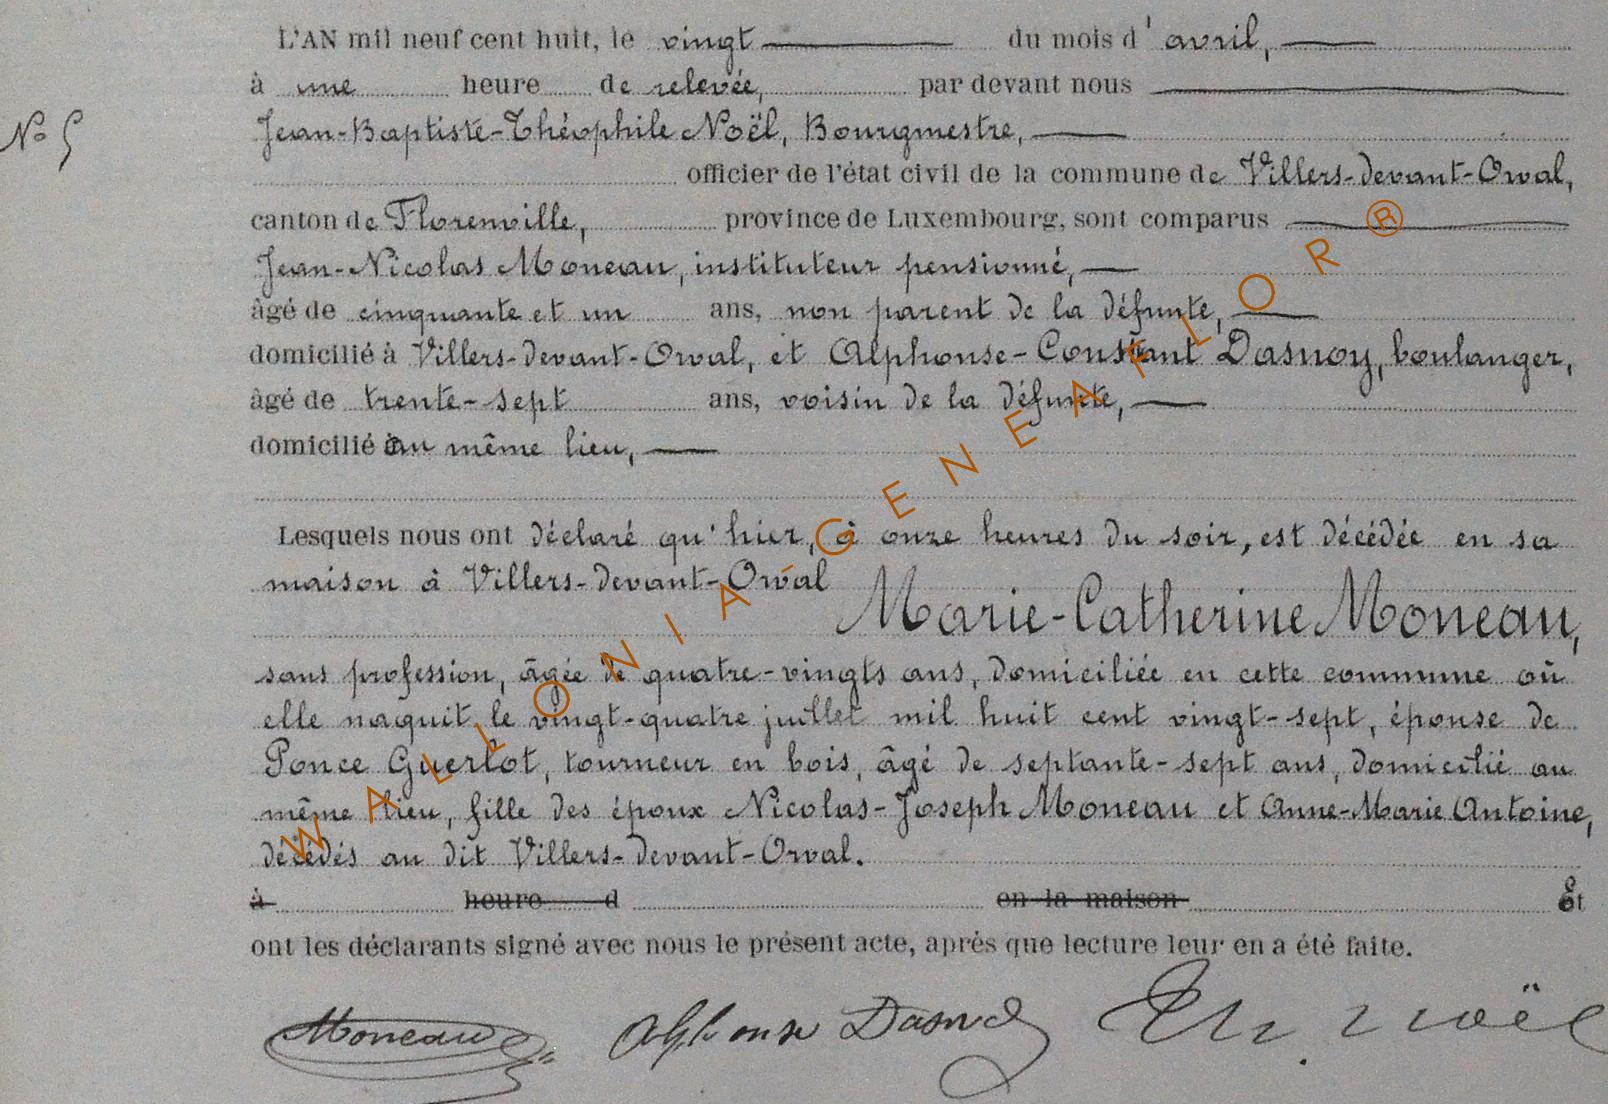 L'AN mil neuf cent huit, le vingt du mois d'avril,
à une heure de relevée, par devant nous
N° 5
Jean-Baptiste-Théophile Noël, Bourgmestre,
officier de l'état civil de la commune de Villers-devant-Orval,
canton de Florenville, province de Luxembourg, sont comparus
Jean-Nicolas Moneau, instituteur pensionné,
âgé de cinquante et un ans, non parent de la défunte,
domicilié à Villers-devant-Orval, et Alphonse-Constant Dasnoy, boulanger,
âgé de trente-sept ans, voisin de la défunte,
domicilié au même lieu,
Lesquels nous ont déclaré qu'hier, à onze heures du soir, est décédée en sa
maison à Villers-devant-Orval
Marie-Catherine Moneau,
sans profession, âgée de quatre-vingts ans, domiciliée en cette commune où
elle naquit le vingt-quatre juillet mil huit cent vingt-sept, épouse de
Ponce Guerlot, tourneur en bois, âgé de septante-sept ans, domicilié au
même lieu, fille des époux Nicolas-Joseph Moneau et Anne-Marie Antoine,
décédés au dit Villers-devant-Orval.
à heure d en la maison Et
ont les déclarants signé avec nous le présent acte, après que lecture leur en a été faite.
Moneau Alphonse Dasnoy Th. Noël
WALLONIA GENEAFLOR®